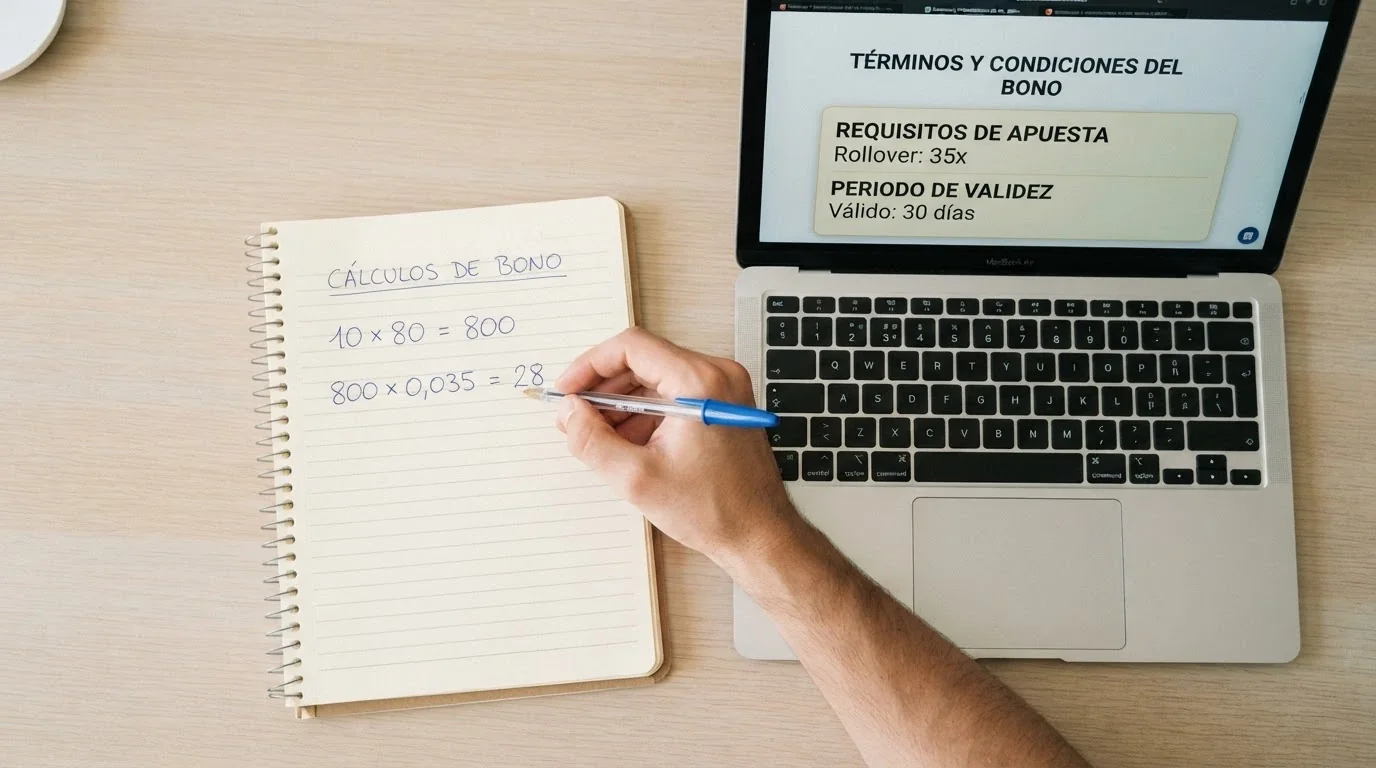 CÁLCULOS DE BONO
10 × 80 = 800
800 × 0,035 = 28
TÉRMINOS Y CONDICIONES DEL
BONO
REQUISITOS DE APUESTA
Rollover: 35x
PERIODO DE VALIDEZ
Válido: 30 días
MacBook Air
Q W E R T Y U I O P
A S D F G H J K L
Z X C V B N M